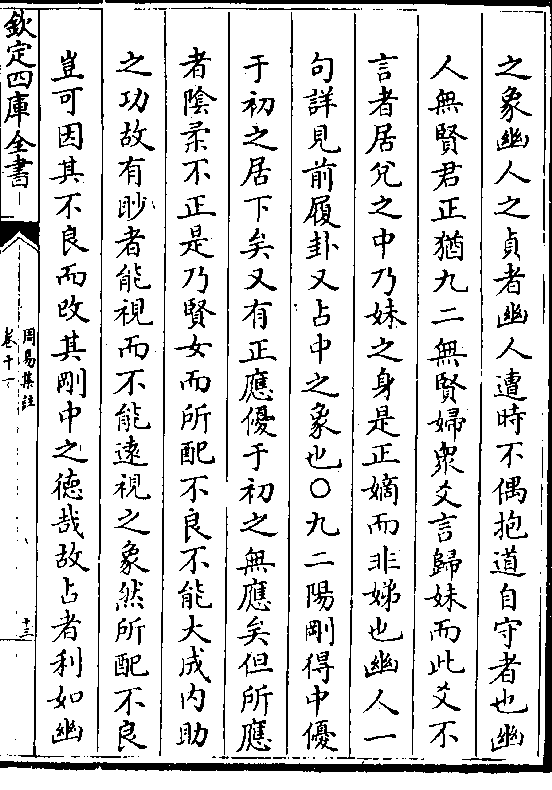 之象幽人之貞者幽人遭時不偶抱道自守者也幽
人無賢君正猶九二無賢婦衆爻言歸妹而此爻不
言者居兌之中乃妹之身是正嫡而非娣也幽人一
句詳見前履卦又占中之象也○九二陽剛得中優
于初之居下矣又有正應優于初之無應矣但所應
者陰柔不正是乃賢女而所配不良不能大成内助
之功故有眇者能視而不能遠視之象然所配不良
豈可因其不良而改其剛中之徳哉故占者利如幽
欽定四庫全書
周易集註
卷十一
十三